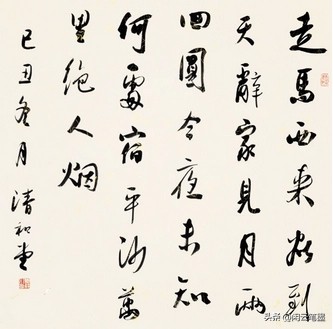 走馬西来欲到
天辭家見月兩
回圓今夜未知
何處宿平沙萬
里絕人烟
己丑冬月 清和
头条